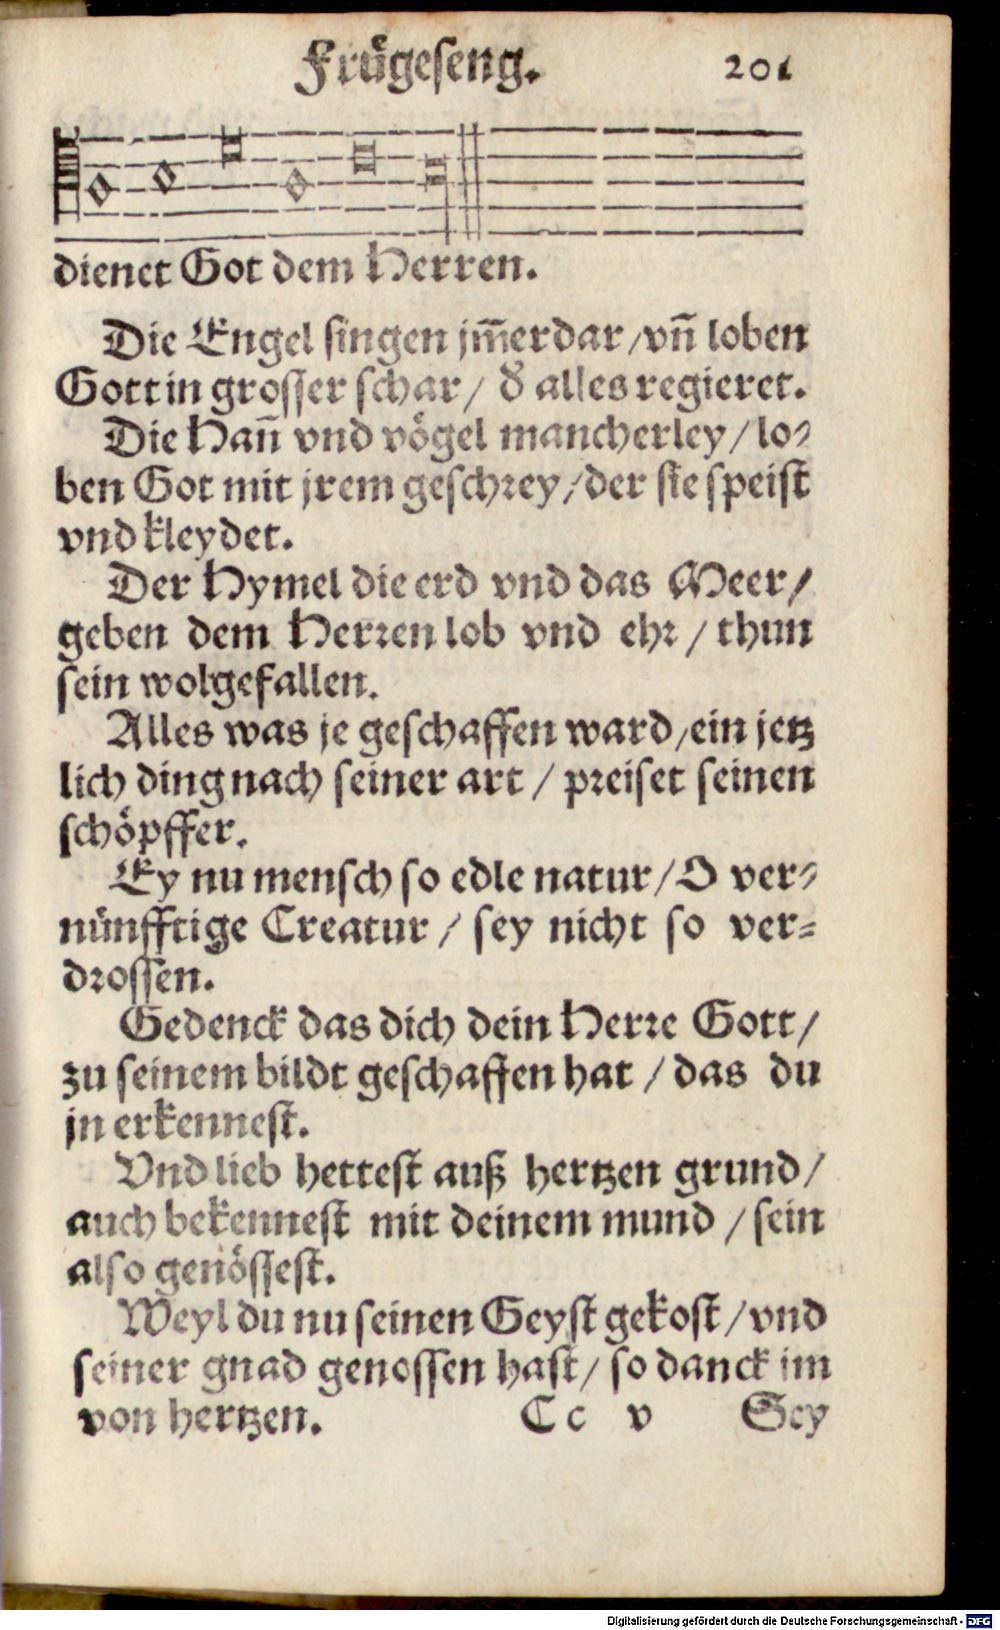 Frügeseng. 201
dienet Got dem Herren.
Die Engel singen jm̃erdar / vñ loben
Gott in grosser schar / ð alles regieret.
Die Hañ vnd vögel mancherley / lo-
ben Got mit jrem geschrey / der sie speist
vnd kleydet.
Der Hymel die erd vnd das Meer /
geben dem Herren lob vnd ehr / thun
sein wolgefallen.
Alles was je geschaffen ward / ein jetz
lich ding nach seiner art / preiset seinen
schöpffer.
Ey nu mensch so edle natur / O ver-
nünfftige Creatur / sey nicht so ver-
drossen.
Gedenck das dich dein Herre Gott /
zu seinem bildt geschaffen hat / das du
jn erkennest.
Vnd lieb hettest auß hertzen grund /
auch bekennest mit deinem mund / sein
also genössest.
Weyl du nu seinen Geyst gekost / vnd
seiner gnad genossen hast / so danck im
von hertzen. Cc v Sey
Digitalisierung gefördert durch die Deutsche Forschungsgemeinschaft - DFG